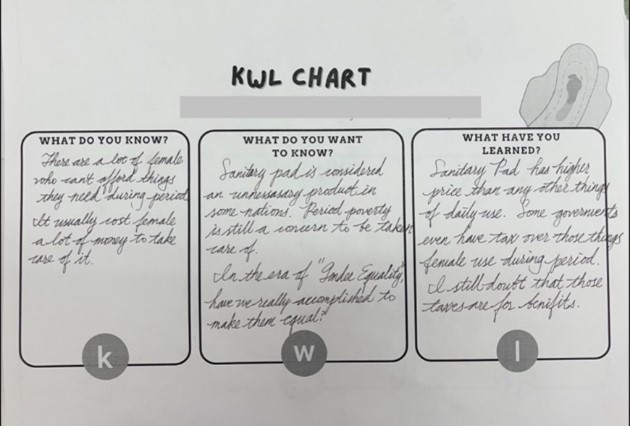 KWL CHART
WHAT DO YOU KNOW?
There are a lot of female
who can't afford things
they need during period
It usually cost female
a lot of money to take
care of it.
k
WHAT DO YOU WANT
TO KNOW?
Sanitary pad is considered
an unnessasary product in
some nations. Period poverty
is still a concern to be taken
care of.
In the era of "Gender Equality",
have we really accomplished to
make them equal?
w
WHAT HAVE YOU
LEARNED?
Sanitary Pad has higher
price than any other things
of daily use. Some goverments
even have tax over those things
female use during period.
I still doubt that those
taxes are for benifits.
l